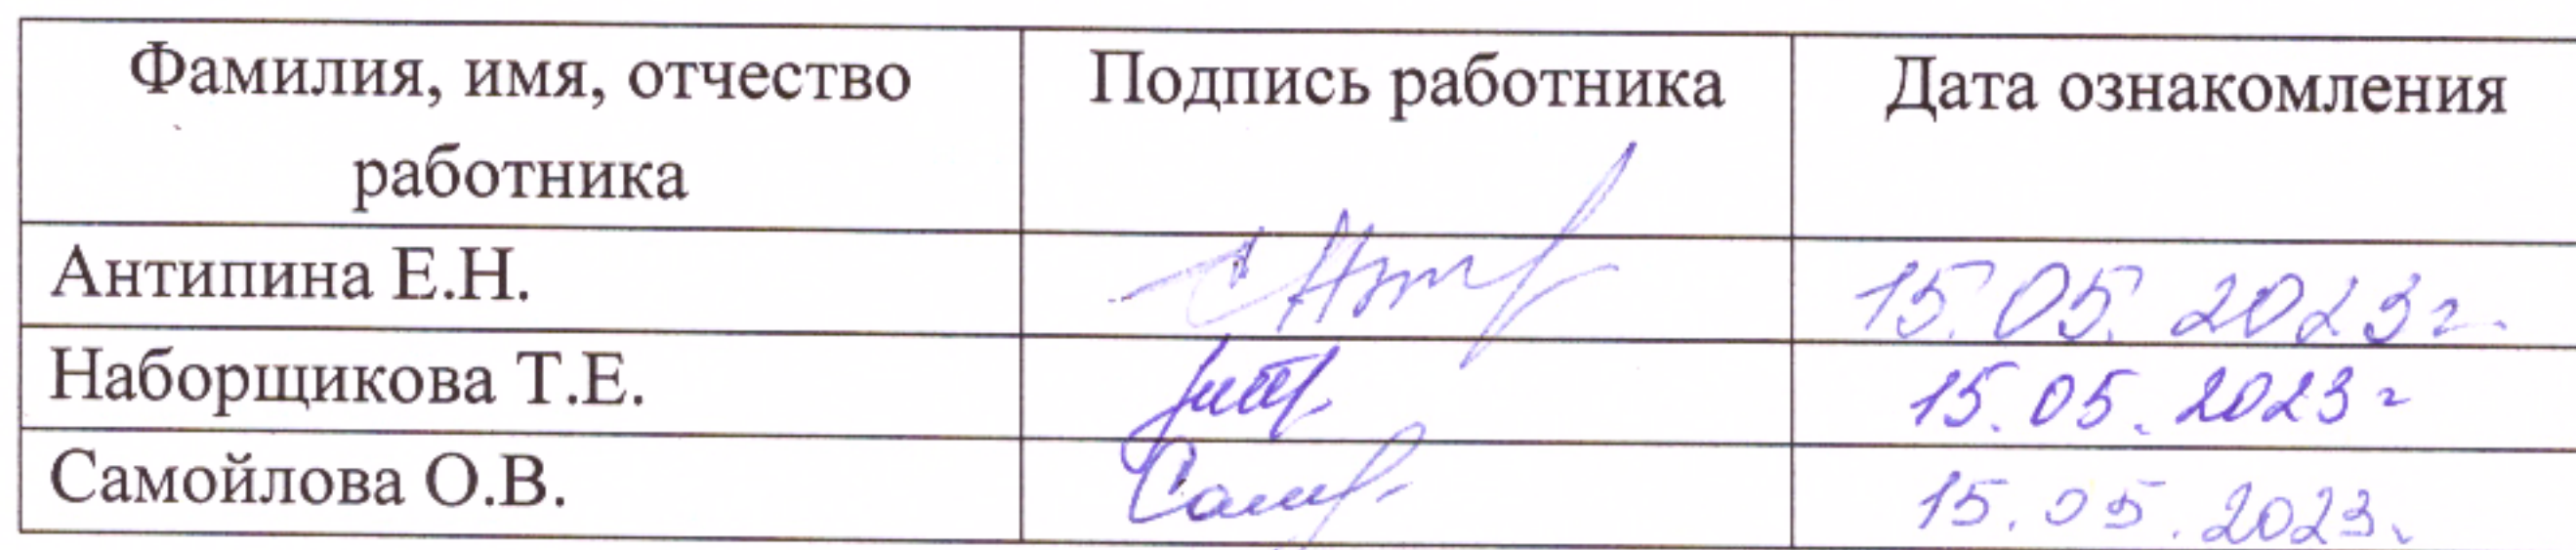 Фамилия, имя, отчество
работника
Подпись работника
Дата ознакомления
Антипина Е.Н.
15.05.2023г.
Наборщикова Т.Е.
15.05.2023г
Самойлова О.В.
15.05.2023.